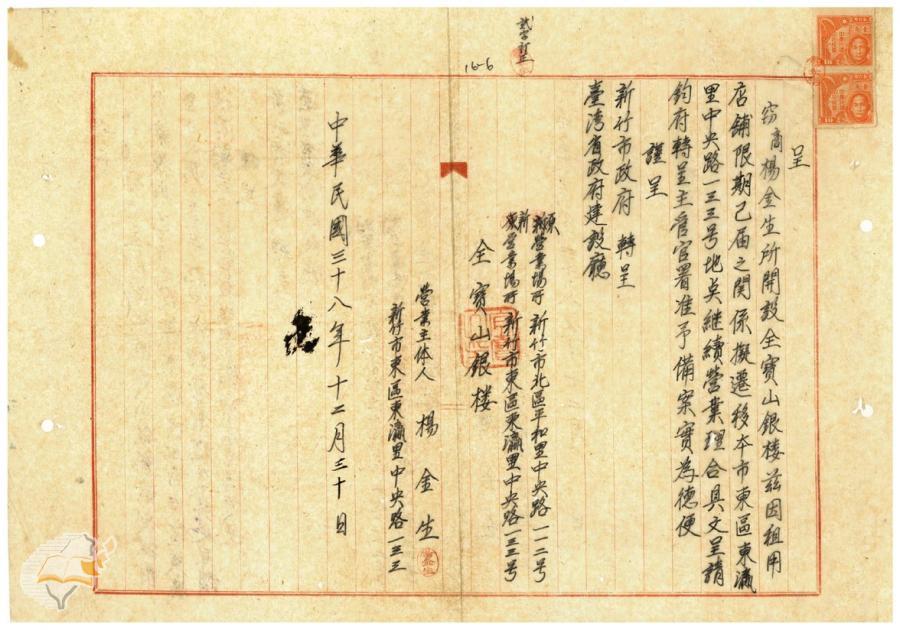 呈
窃商楊金生所開設全寶山銀楼茲因租用
店舖限期已届之関係擬遷移本市東區東瀛
里中央路一三三号地点継續營業理合具文呈請
鈞府轉呈主管官署准予備案實為德便
謹呈
新竹市政府 轉呈
臺湾省政府建設廳
原營業場所 新竹市北區平和里中央路一一二号
新營業場所 新竹市東區東瀛里中央路一三三号
全寶山銀楼
營業主体人 楊金生
新竹市東區東瀛里中央路一三三
中華民國三十八年十二月三十日
16-6